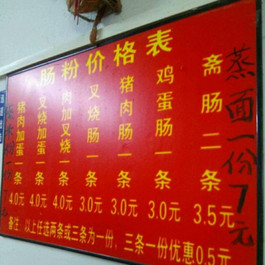 肠粉价格表
猪肉加蛋一条 4.0元
叉烧加蛋一条 4.0元
肉加叉烧一条 4.0元
叉烧肠一条 3.0元
猪肉肠一条 3.0元
鸡蛋肠一条 3.0元
斋肠二条 3.5元
备注:以上任选两条或三条为一份、三条一份优惠0.5元
蒸面一份7元